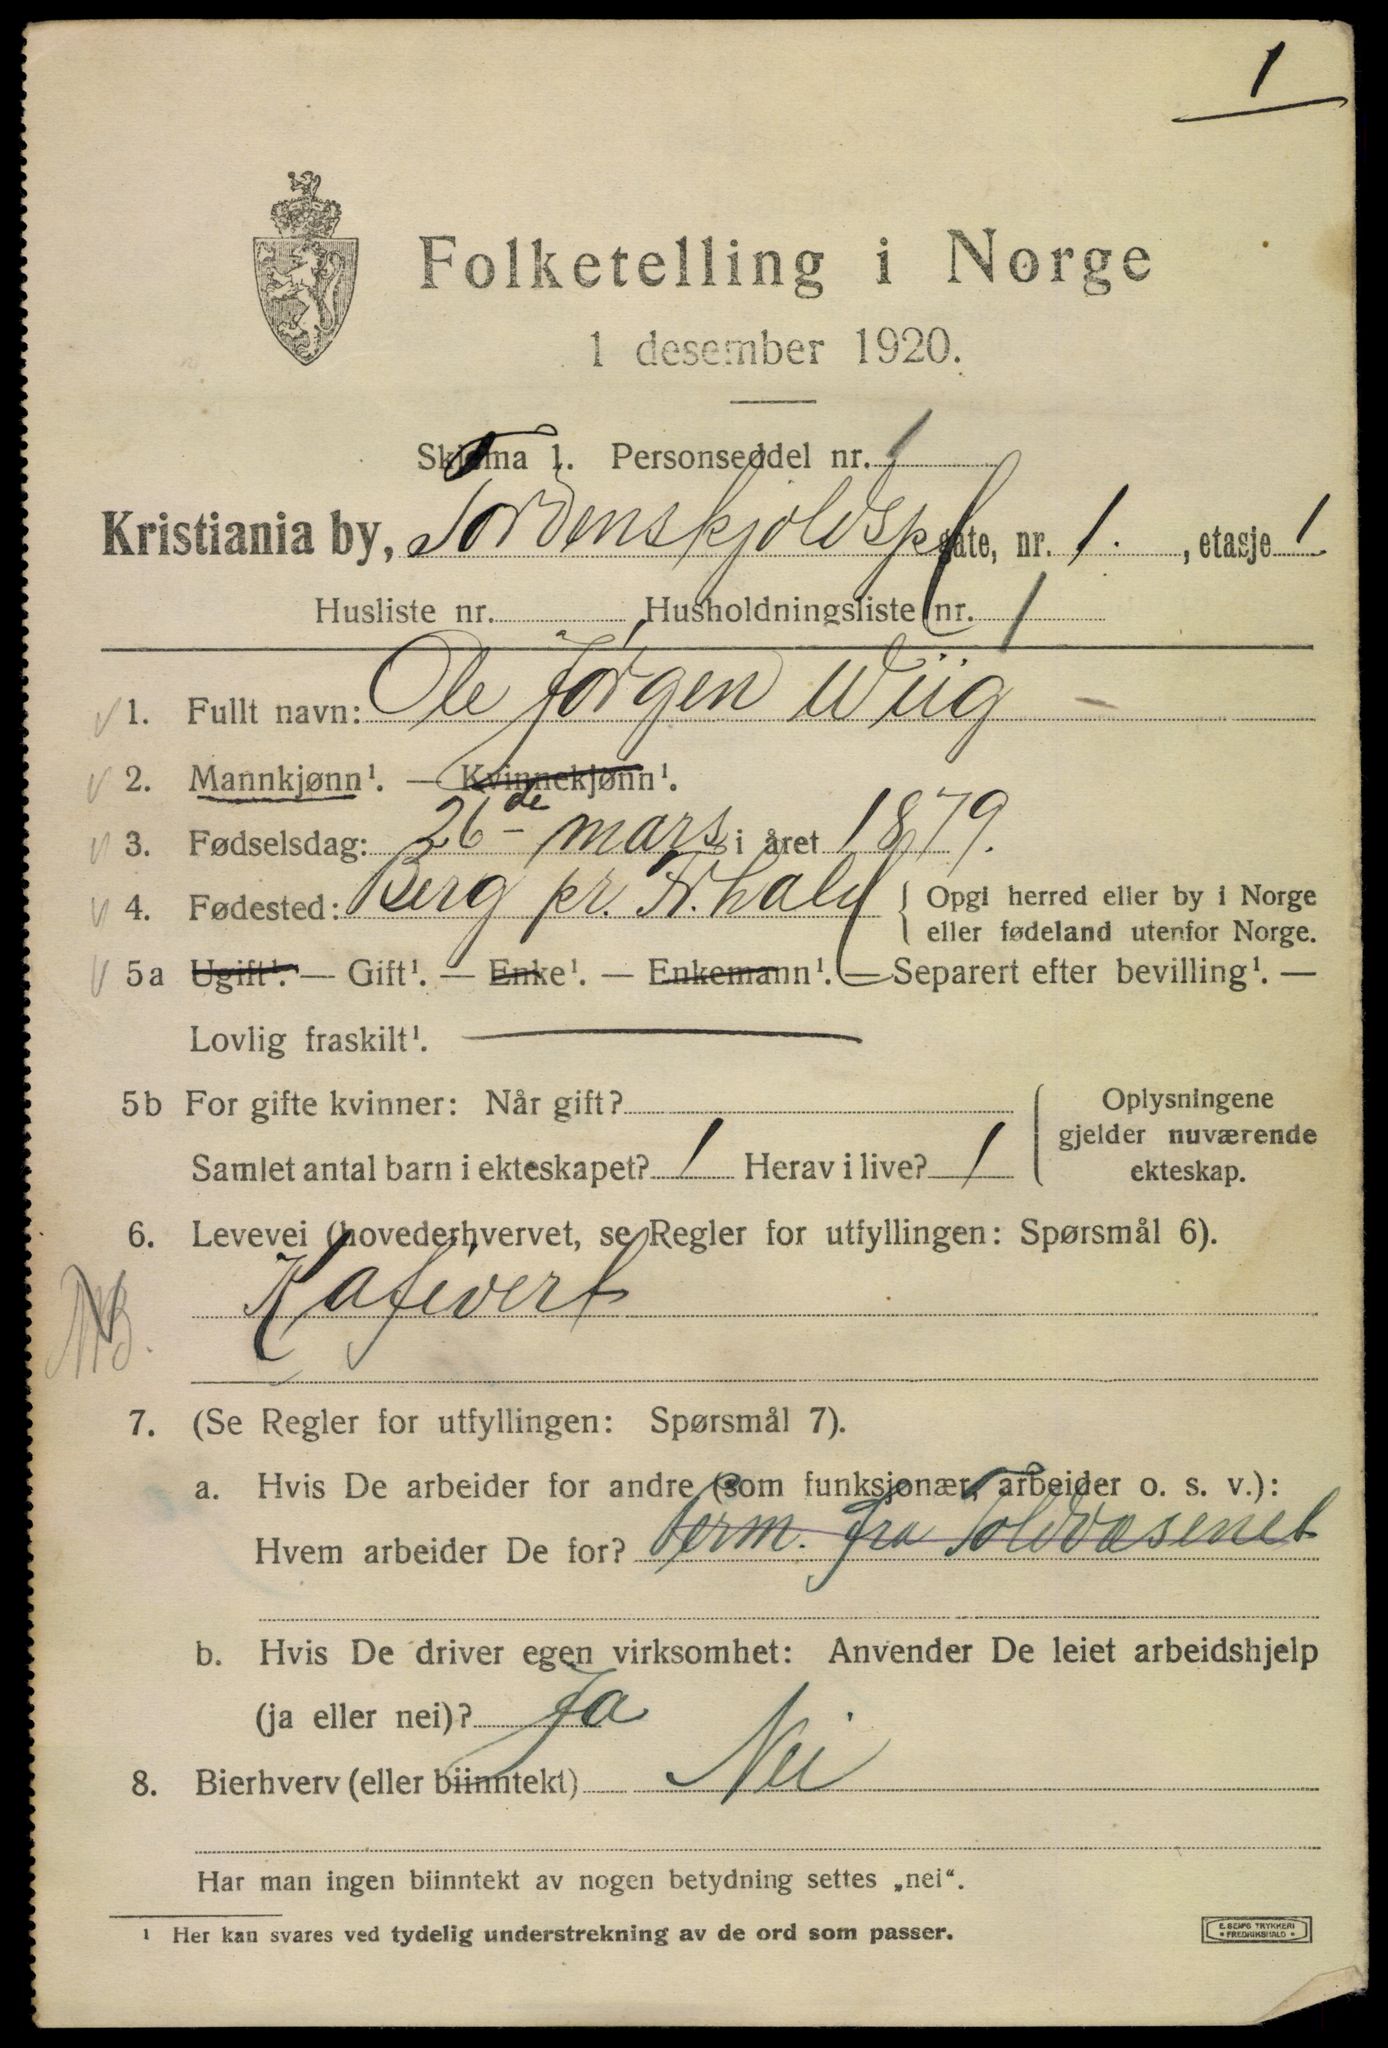 1
Folketelling i Norge
1 desember 1920.
Skjema 1. Personseddel nr. 1
Kristiania by, Tordenskjoldspl gate, nr. 1. , etasje 1
Husliste nr. Husholdningsliste nr. 1
1. Fullt navn: Ole Jørgen Wiig
2. Mannkjønn¹. — Kvinnekjønn¹.
3. Fødselsdag: 26de mars i året 1879.
4. Fødested: Berg pr. Fr.hald { Opgi herred eller by i Norge
eller fødeland utenfor Norge.
5a Ugift¹. — Gift¹. — Enke¹. — Enkemann¹. — Separert efter bevilling¹. —
Lovlig fraskilt¹.
5b For gifte kvinner: Når gift?
Samlet antal barn i ekteskapet? 1 Herav i live? 1
Oplysningene
gjelder nuværende
ekteskap.
6. Levevei (hovederhvervet, se Regler for utfyllingen: Spørsmål 6).
Kafévert
NB.
7. (Se Regler for utfyllingen: Spørsmål 7).
a. Hvis De arbeider for andre (som funksjonær, arbeider o. s. v.):
Hvem arbeider De for? Perm. fra Toldvæsenet
b. Hvis De driver egen virksomhet: Anvender De leiet arbeidshjelp
(ja eller nei)? Ja
8. Bierhverv (eller biinntekt) Nei
Har man ingen biinntekt av nogen betydning settes „nei“.
¹ Her kan svares ved tydelig understrekning av de ord som passer.
E. SEMS TRYKKERI
• FREDRIKSHALD •